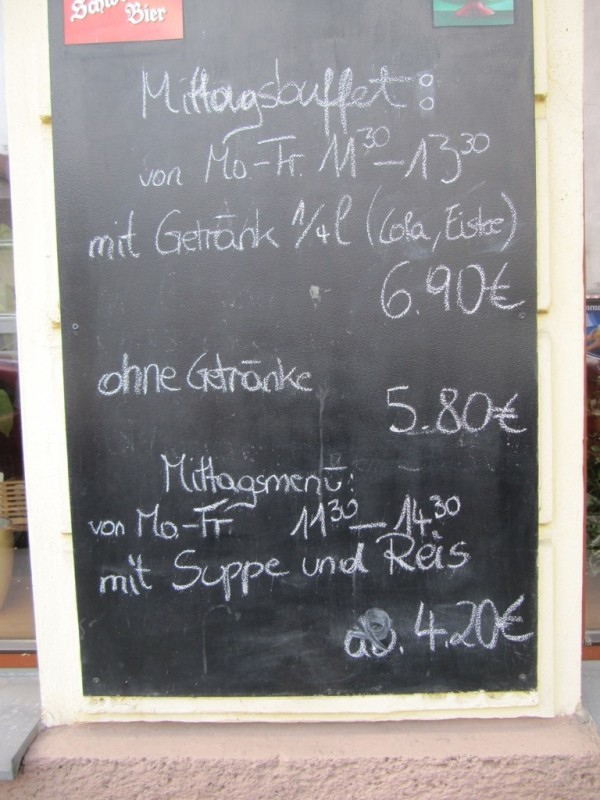 Bier
Mittagsbuffet:
von Mo.-Fr. 11³⁰-13³⁰
mit Getränk 1/4l (Cola, Eistee)
6.90€
ohne Getränke
5.80€
Mittagsmenü:
von Mo.-Fr 11³⁰-14³⁰
mit Suppe und Reis
ab. 4.20€